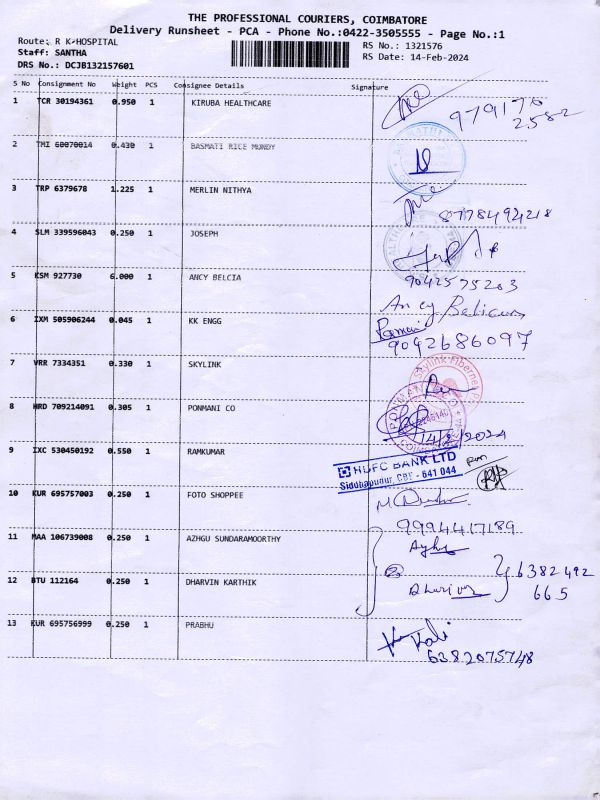 THE PROFESSIONAL COURIERS, COIMBATORE
Delivery Runsheet - PCA - Phone No.:0422-3505555 - Page No.:1
Route: R K HOSPITAL
Staff: SANTHA
DRS No.: DCJB132157601
RS No.: 1321576
RS Date: 14-Feb-2024
S No Consignment No Weight PCS Consignee Details Signature
1 TCR 30194361 0.950 1 KIRUBA HEALTHCARE
979176
2582
2 TMI 60070014 0.430 1 BASMATI RICE MUNDY
3 TRP 6379678 1.225 1 MERLIN NITHYA
8778494218
4 SLM 339596043 0.250 1 JOSEPH
9042575203
5 KSM 927730 6.000 1 ANCY BELCIA
Ancy
6 IXM 505906244 0.045 1 KK ENGG
9042686097
7 VRR 7334351 0.330 1 SKYLINK
Skylink Fibernet
8 HRD 709214091 0.305 1 PONMANI CO
14/2/2024
9 IXC 530450192 0.550 1 RAMKUMAR
HDFC BANK LTD
Siddhapudur, CBE - 641 044
10 KUR 695757003 0.250 1 FOTO SHOPPEE
9994417189
11 MAA 106739008 0.250 1 AZHGU SUNDARAMOORTHY
12 BTU 112164 0.250 1 DHARVIN KARTHIK
6382492
665
13 KUR 695756999 0.250 1 PRABHU
Kali
6382075748